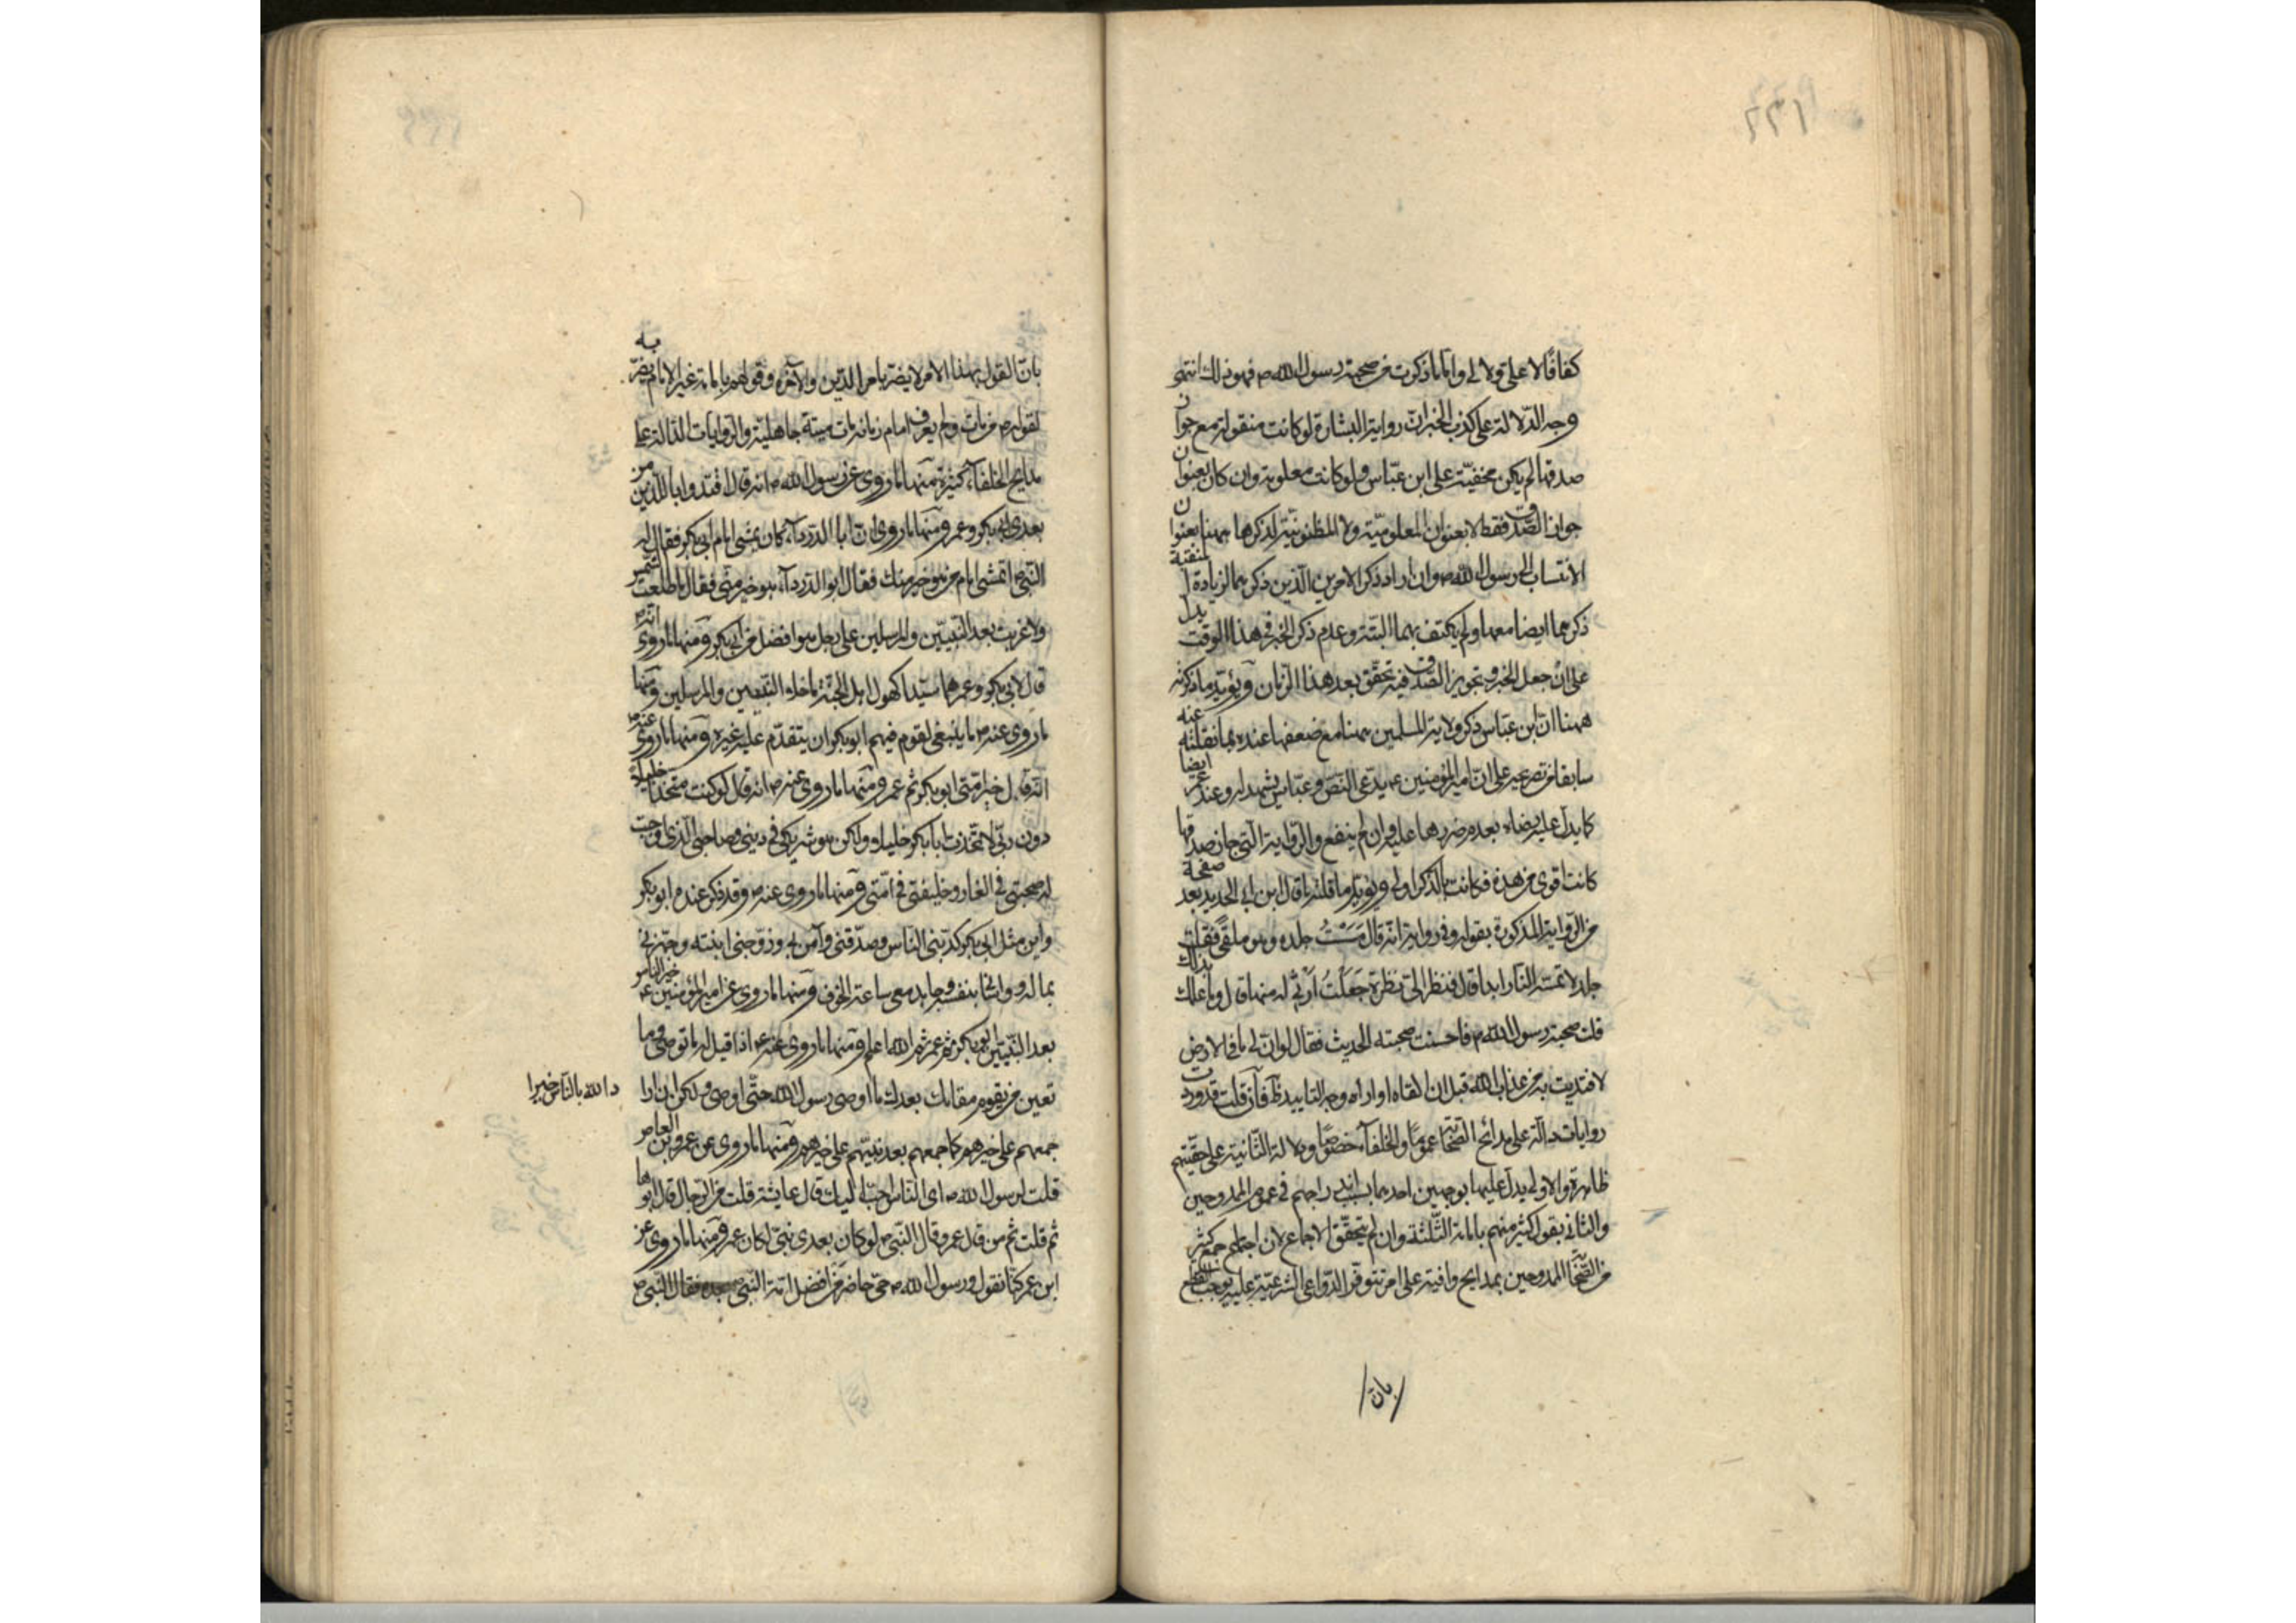 كفافًا لا علي ولا لي واما ما ذكرت من صحبة رسول الله ص فهو ذلك انتهى
وجه الدلالة على كذب الخبر انّ رواية البشارة لو كانت منقولة مع جواز
صدقها لم يكن مخفيّة على ابن عبّاس ولو كانت معلومة وان كان بعنوان
جواز الصّدق فقط لا بعنوان المعلوميّة ولا المظنونيّة لذكرها ههنا بعنوان
الانتساب الى رسول الله ص وان اراد ذكر الامرين الّذين ذكرهما لزيادة المنقبة
ذكرهما ايضا معها ولم يكتف بهما البتة وعدم ذكر الخبر في هذا الوقت يدل
على انّ جعل الخبر وتجويز الصّدق فيه تحقّق بعد هذا الزمان ويؤيّد ما ذكرته
ههنا انّ ابن عبّاس ذكر ولاية المسلمين ههنا مع ضعفها عنده بما نقلته عنه
سابقا من تصريحه على انّ امير المؤمنين ع يدّعى النّص وعبّاس يشهد له وعند عمر ايضا
كما يدلّ عليه رضاه بعدم ضررها عليه وان لم ينفع والرّواية الّتي جاز صدقها
كانت اقوى من هذه فكانت بالذكر اولى ويؤيّد ما قلته ما قال ابن ابي الحديد بعد صفحة
من الرّواية المذكورة بقوله وفي رواية انّه قال مَسَسْتُ جلده وهو ملقًى فقلت
جلد لا تمسّه النّار ابدا قال فنظر اليّ نظرة جَعَلْتُ اَرْثي له منها قال وما علمك بذلك
قلت صحبت رسول الله ص فاحسنت صحبته الحديث فقال لو انّ لي ما في الارض
لافتديت به من عذاب الله قبل ان القاه او اراه وجه التاييد ظ فان قلت قد وردت
روايات دالّة على مدائح الصّحابة عمومًا والخلفاء خصوصًا ودلالة الثّانية على حقّيتهم
ظاهرة والاولى يدلّ عليها بوجهين احدهما بسبب اندراجهم في عموم الممدوحين
والثاني بقول كثير منهم بامامة الثّلثة وان لم يتحقّق الاجماع لان اجتماع جمع كثير
من الصّحابة الممدوحين بمدايح وافية على امر تتوفّر الدّواعي الشرعيّة عليه يوجب القطع
بان
بانّ القول بهذا الامر لا يضرّ بامر الدّين والآخرة وقولهم بامامة غير الامام يضرّ به
لقوله ص من مات ولم يعرف امام زمانه مات ميتة جاهليّة والرّوايات الدّالة على
مدايح الخلفآء كثيرة منها ما روى عن رسول الله ص انه قال اقتدوا باللّذين من
بعدي ابي بكر وعمر ومنها ما روى انّ ابا الدّرداء كان يمشي امام ابي بكر فقال له
النّبي ص اتمشي امام من هو خير منك فقال ابو الدّرداء هو خير منّي فقال ما طلعت الشمس
ولا غربت بعد النّبيّين والمرسلين على رجل هو افضل من ابي بكر ومنها ما روى انّه ص
قال لابي بكر وعمر هما سيّدا كهول اهل الجنّة ما خلا النّبيين والمرسلين ومنها
ما روى عنه ص ما ينبغي لقوم فيهم ابو بكر ان يتقدّم عليه غيره ومنها ما روى عنه ص
انّه قال خير امّتي ابو بكر ثم عمر ومنها ما روى عنه ص انه قال لو كنت متخذا خليلا
دون ربّي لاتّخذت ابا بكر خليلا ولكن هو شريكي في ديني وصاحبي الّذي وجبت
له صحبتي في الغار وخليفتي في امّتي ومنها ما روى عنه ص وقد ذكر عنده ابو بكر
واين مثل ابي بكر كذّبني الناس وصدّقني وآمن بي وزوّجني ابنته وجهّزني
بماله وواساني بنفسه وجاهد معي ساعة الخوف ومنها ما روى عن امير المؤمنين ع خير الناس
بعد النّبيّين ابو بكر ثمّ عمر ثمّ الله اعلم ومنها ما روى عنه ع اذا قيل له ما توصي وما
تعين من يقوم مقامك بعدك ما اوصى رسول الله حتّى اوصي ولكن ان اراد الله بالنّاس خيرا
جمعهم على خيرهم كما جمعهم بعد نبيّهم على خيرهم ومنها ما روى عن عمرو بن العاص
قلت لرسول الله ص اى النّاس احبّ اليك قال عايشة قلت من الرّجال قال ابوها
ثم قلت ثم من قال عمر وقال النّبي ص لو كان بعدي نبيّ لكان عمر ومنها ما روى عن
ابن عمر كنّا نقول ورسول الله ص حيّ حاضر من افضل امّة النّبي فقال النّبي ص